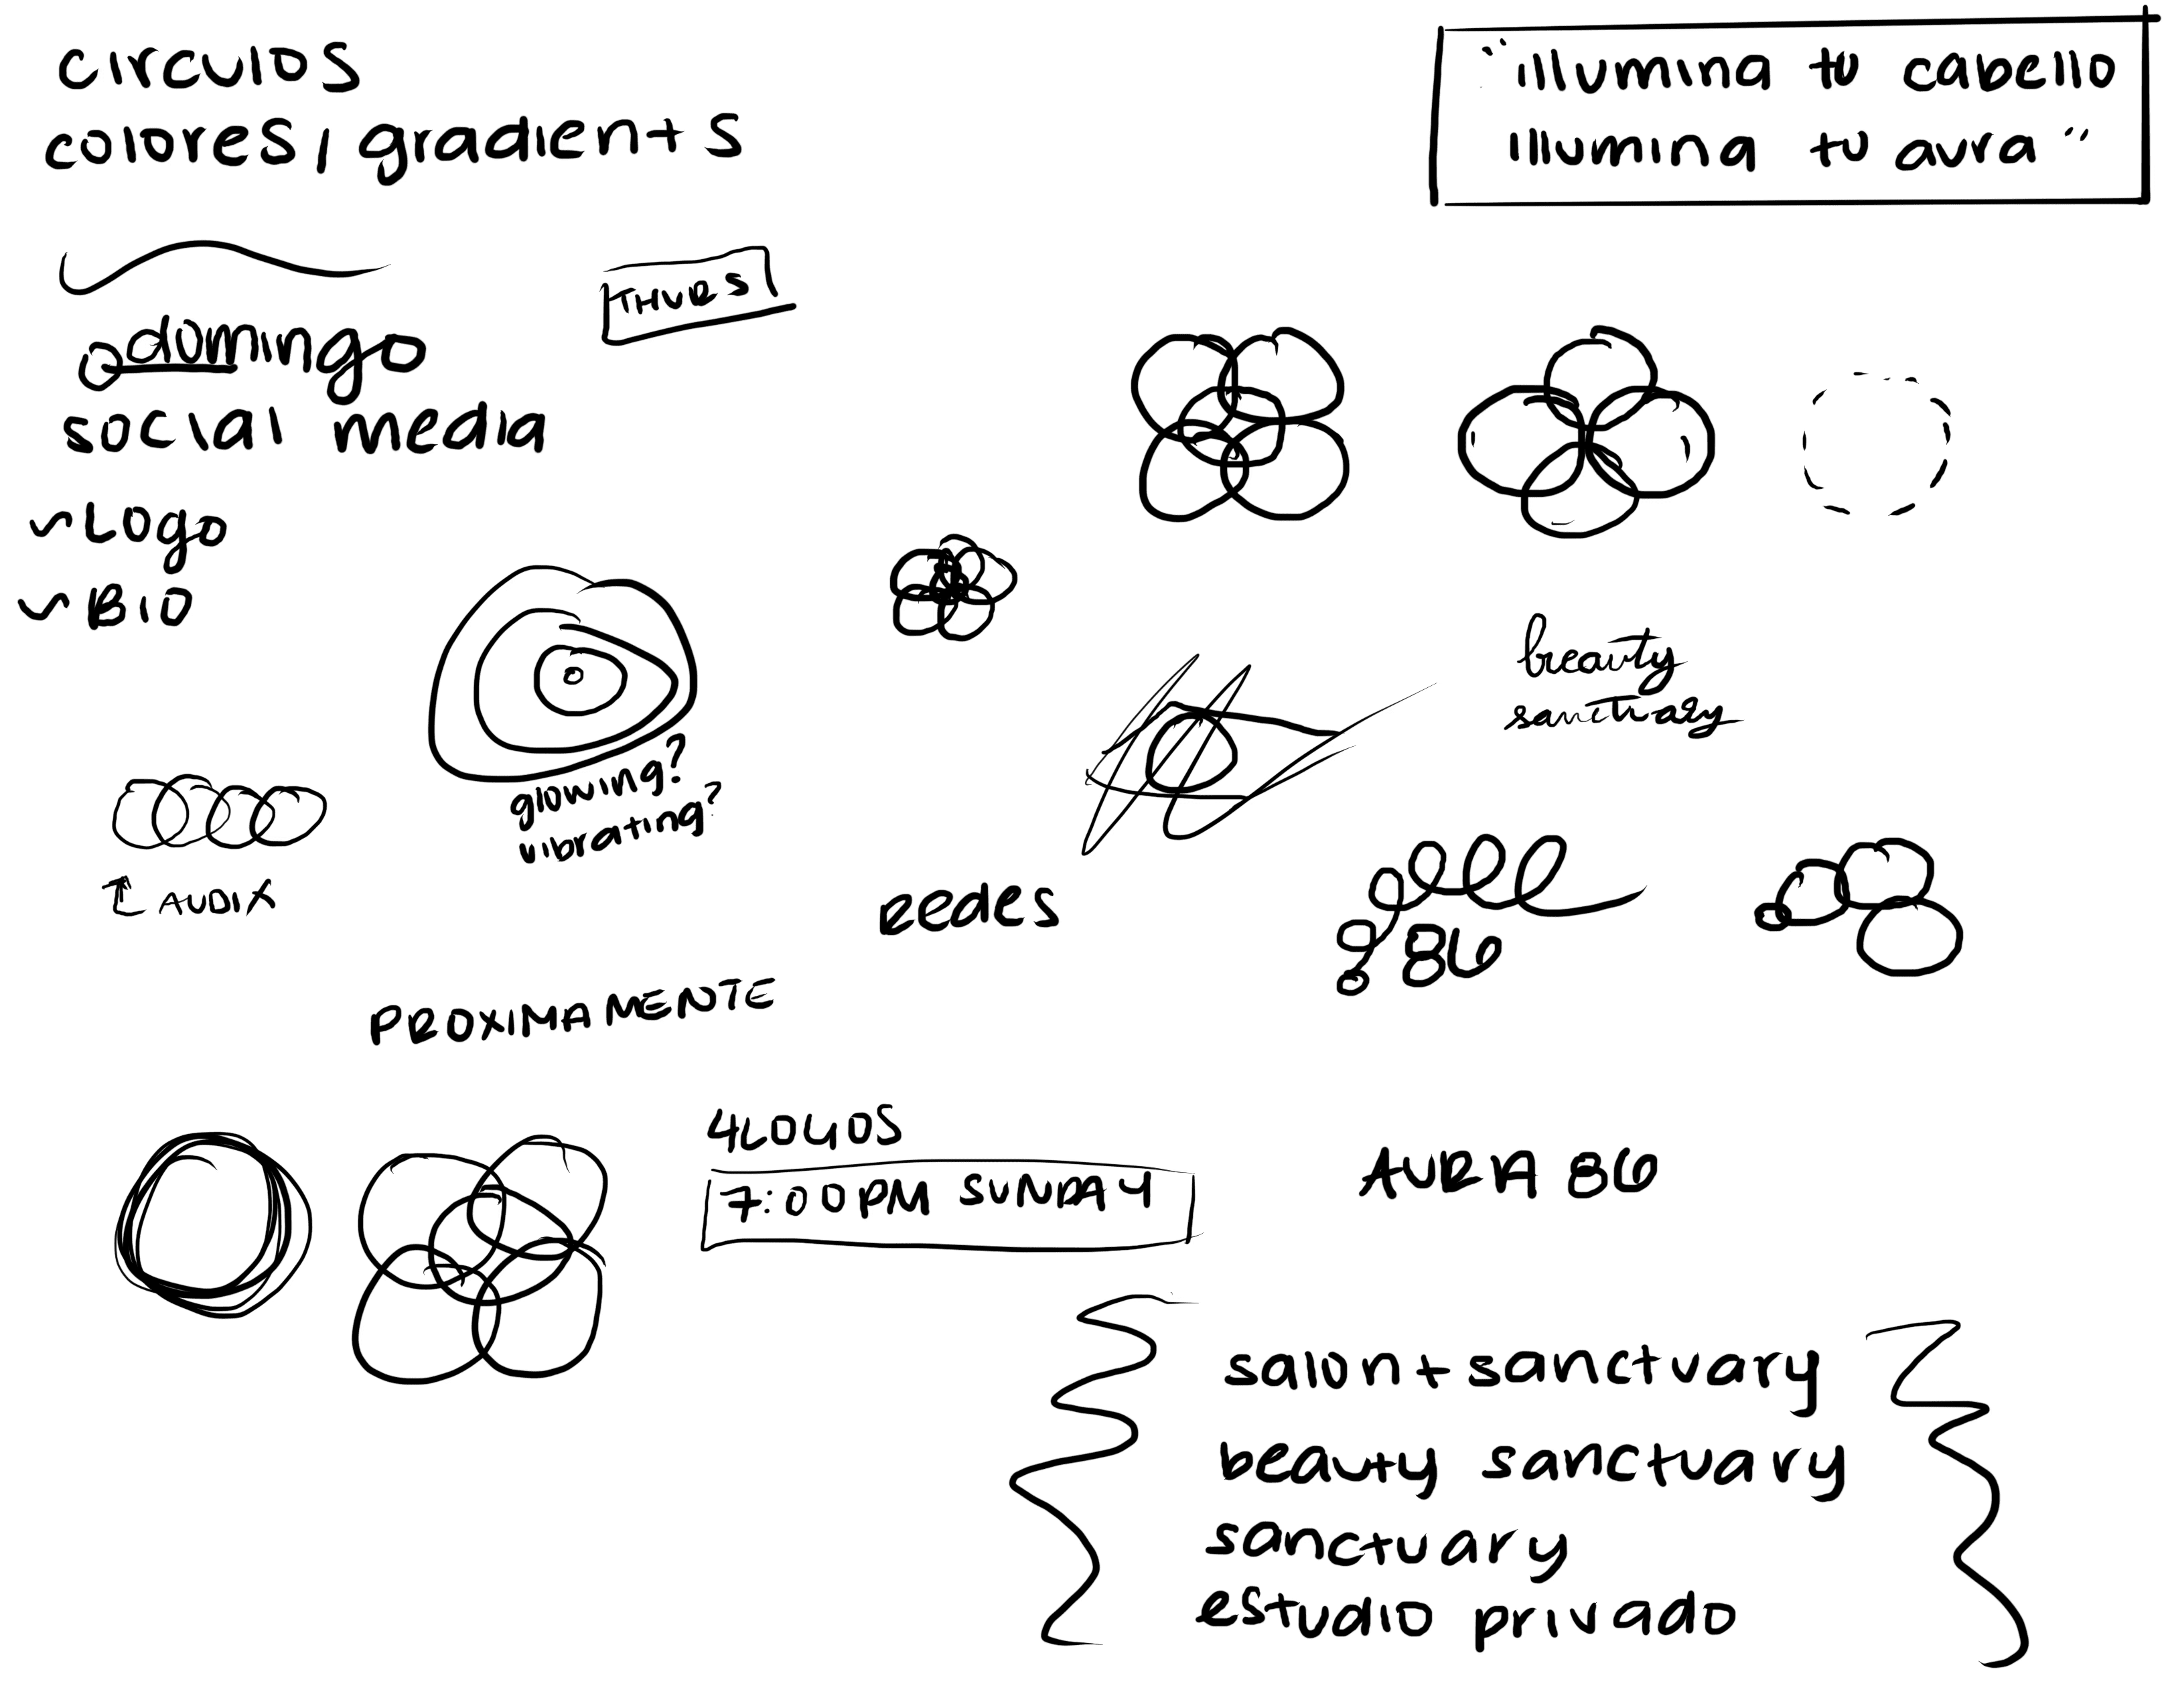 circulos
colores, gradients
"illumina tu cabello
illumina tu aura"
THURS
domingo
social media
~ Logo
~ BIO
beauty
sanctuary
glowing?
vibrating?
AUDIX
Redes
8 86
PROXIMAMENTE
4 LOGOS
7:00PM SUNDAY
AURA 86
salon + sanctuary
beauty sanctuary
sanctuary
estudio privado